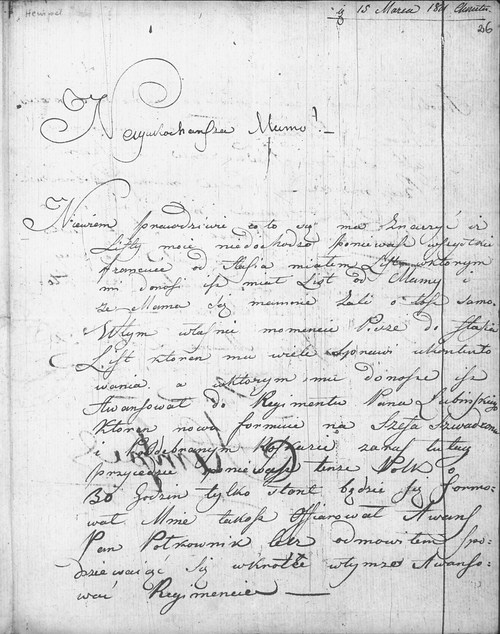 15 Marca
26
Nayukochansza Mamo!
Niewiem prawdziwie co to się ma znaczyć iż
Listy moie niedochodzą ponieważ
od Stasia miałem List wktorym
mi donosi iż miał List od Mamy i
że Mama się namnie żali o toż samo.
Wtym właśnie momencie Pisze do Stasia
List ktoren mu wiele sprawi ukontento
wania. a wktorym mu donosze iż
Awansował do Regimentu Pana
Ktoren nowo formuie na Szefa Szwadronu
i odebranym zaraz tutay
przyiedzie ponieważ tenże Polk o
30 Godzin tylko stont będzie się formo=
wał Mnie także Offiarował Awans
Pan Połkownik lecz odmowiłem spo=
dziewaiąc się wkrotce wtymże Awanso=
wać Regimencie —